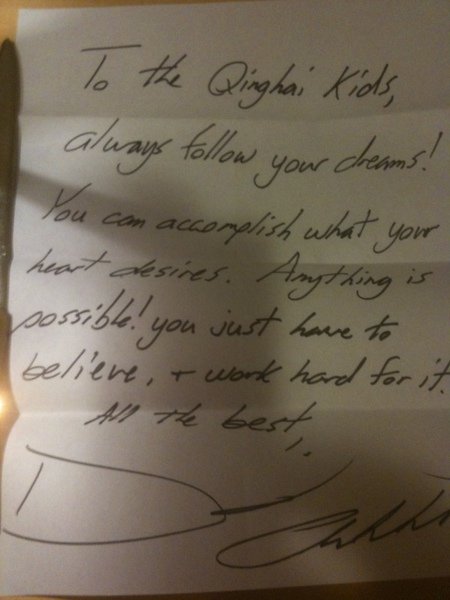 To the Qinghai Kids,
always follow your dreams!
You can accomplish what your
heart desires. Anything is
possible! you just have to
believe, + work hard for it.
All the best,